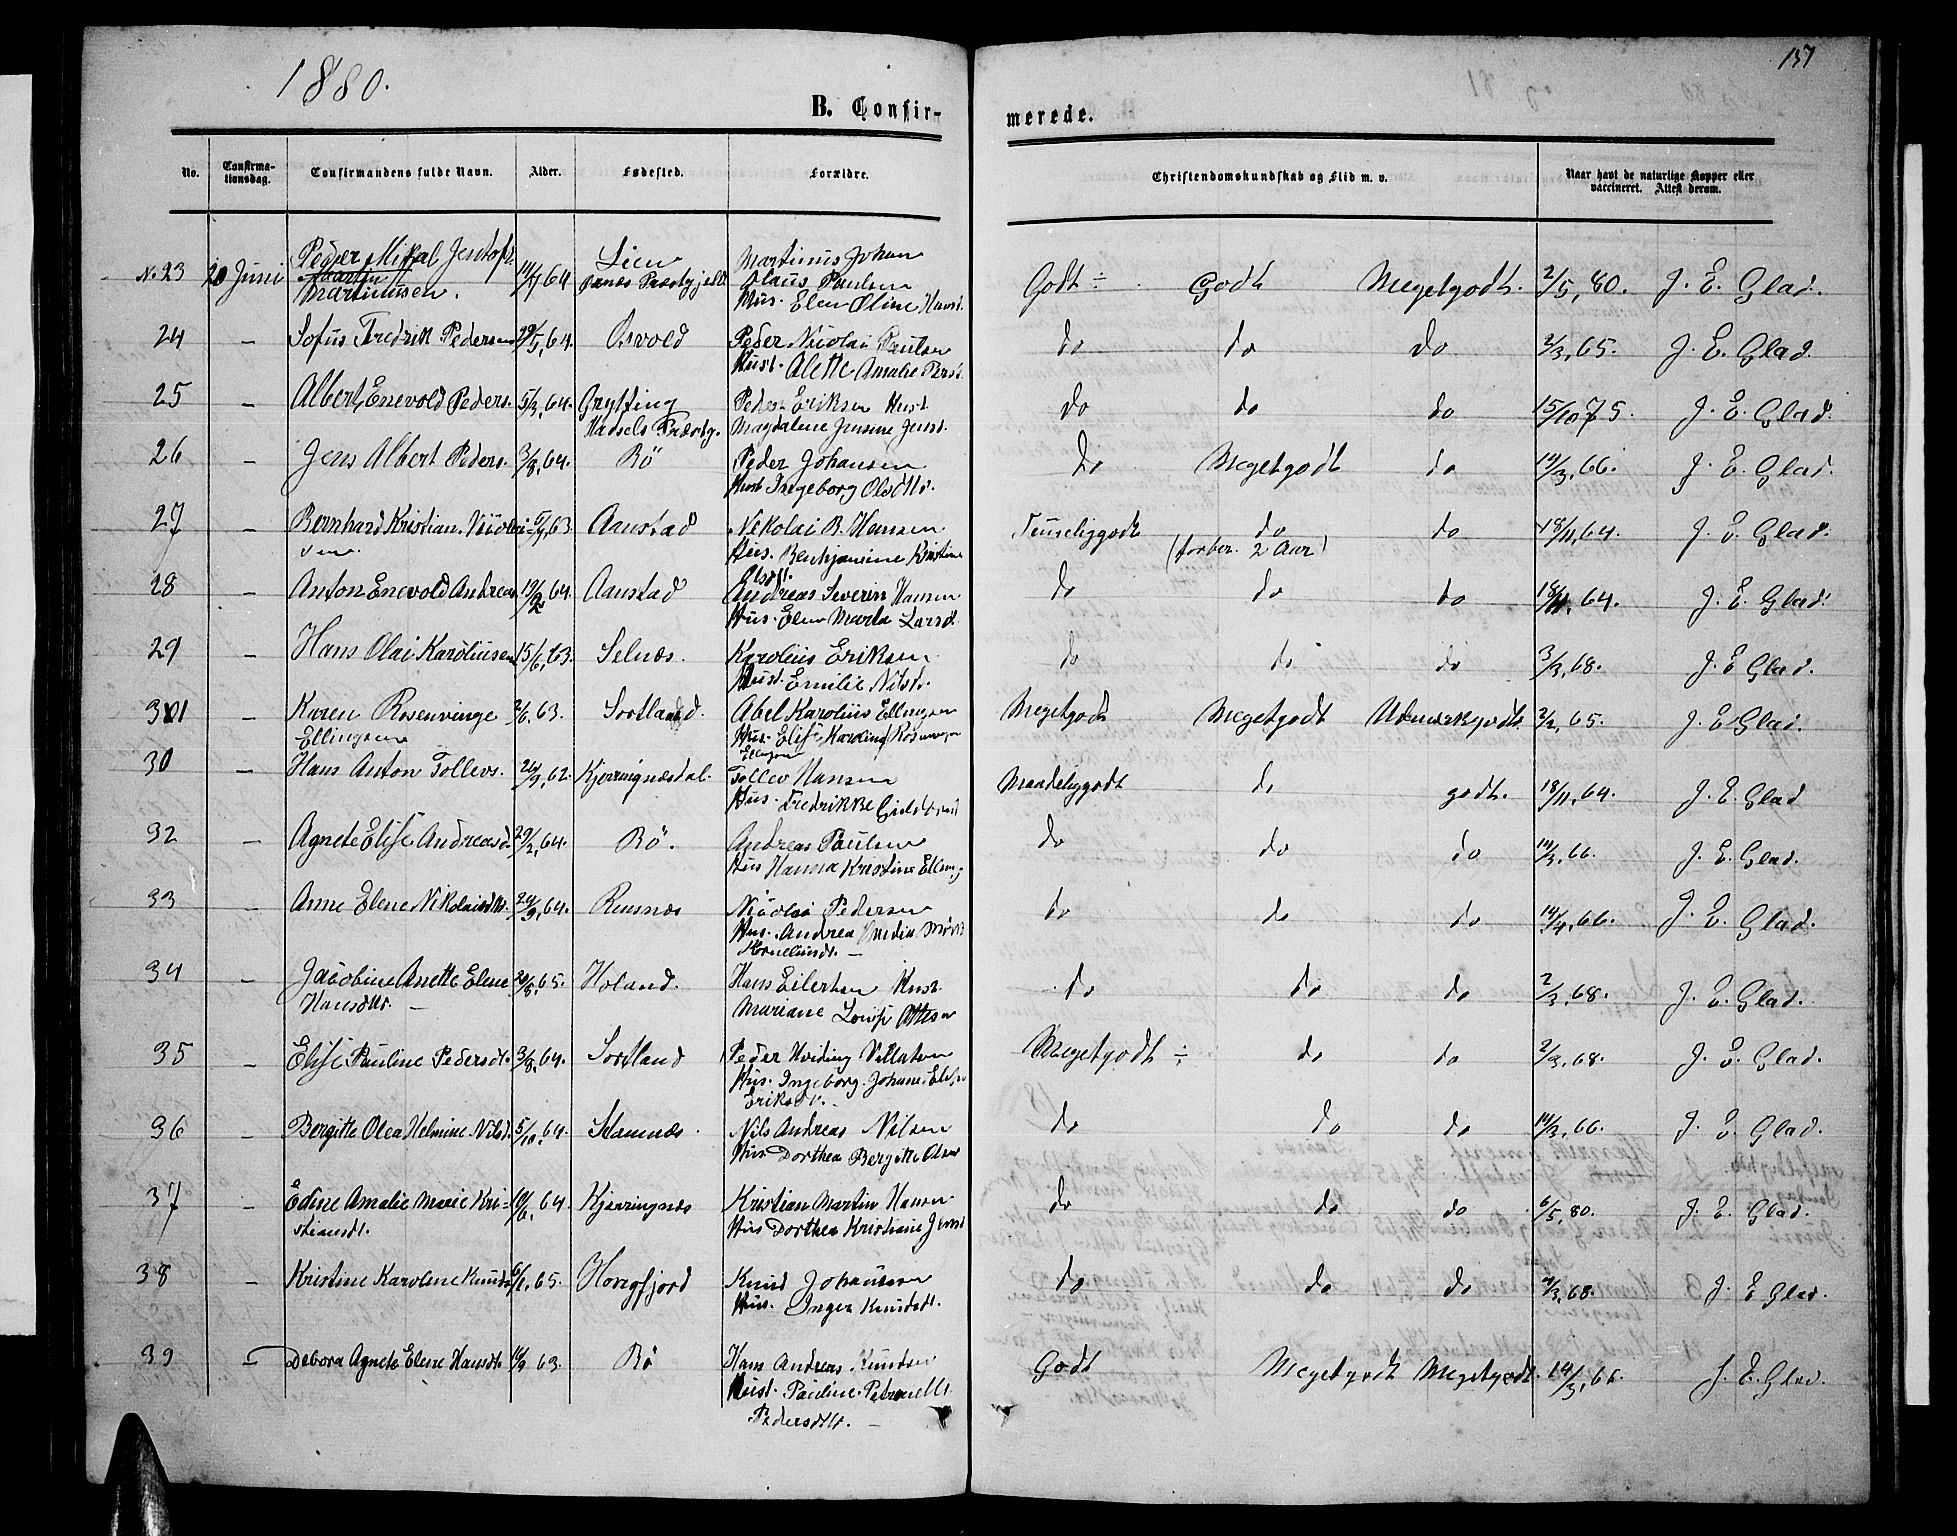 1880.
157
B. Confir-
merede.
No.
Confirma-
tionsdag.
Confirmandens fulde Navn.
Alder.
Fødested.
Forældre.
Christendomskundskab og Flid m. v.
Naar havt de naturlige Kopper eller
vaccineret. Attest derom.
No 23 20 Juni Peder Mikal Jentoft Martinussen. 64 Lien Martinus Johan Olaus Paulsen Hus. Elen Oline Hansd. Godt ÷ Godt Megetgodt. 2/5, 80. J. E. Glad.
24 – Sofus Fredrik Pedersen 29/5, 64. Osvold Peder Nicolai Paulsen Hust. Alette Amalie Persd. do do do 2/3, 65. J. E. Glad.
25 – Albert Enevold Peders. 5/3, 64. Grytting Hadsels Præstg. Peder Eriksen Hust Magdalene Jensine Jensd. do do do 15/10 75. J. E. Glad.
26 – Jens Albert Peders. 3/8, 64. Bö Peder Johansen Hust Ingeborg Olsdtr. do Megetgodt do 14/3, 66. J. E. Glad.
27 – Bernhard Kristian Nicolai- sen. 63. Aanstad Nekolai B. Hansen Hus. Benhjamine Kristine Olsdt. Temeliggodt do (forber. 2 Aar) do 18/11, 64. J. E. Glad.
28 – Anton Enevold Andreas 19/2 64. Aanstad Andreas Severin Hansen Hus. Elen Marta Larsd. do do do 18/11, 64. J. E. Glad.
29 – Hans Olai Karoliusen 15/6, 63. Selnæs. Karolius Eriksen Hust. Emilie Nilsd. do do do 3/3, 68. J. E Glad.
31 – Karen Rosenvinge Ellingsen 2/6, 63. Sortland. Abel Karolius Ellingsen Hus. Elise Harding Rosenvinge Ellingsen Megetgodt Megetgodt Udmerketgodt 65. J. E Glad.
30 – Hans Anton Tollevs. 62. Kjerringnæsdal. Tollev Hansen Hus. Fredrikke Maadeliggodt do godt. 18/11, 64. J. E. Glad
32 – Agnete Elise Andreasd. 29/2, 64. Bö. Andreas Paulsen Hus Hanna Kristine Elling do do do 14/3, 66. J. E. Glad.
33 – Anne Elene Nikolaisdtr. 64. Reinsnæs Nicolai Pedersen Hus. Andrea Kornelius dt. – do do do 14/4, 66. J. E. Glad.
34 – Jacobine Anette Elene Hansdtr. – 65. Holand. Hans Eilertsen Hust Mariane Louise Ottesen do do do 2/3, 68. J. E. Glad.
35 – Elise Pauline Pedersdt. 3/8, 64. Sortland Peder Hveding Villatsen Hus. Ingeborg Johane Elise Eriksdt. – Megetgodt ÷ do do 2/3, 68. J. E. Glad.
36 – Bergitte Olea Helmine Nilsd. 5/10, 64. Stamnæs. Nils Andreas Nilsen Hus Dorthea Bergitte Olsen do do do 14/3, 66. J. E. Glad.
37 – Edine Amalie Marie Kri- stiansdt. 64. Kjerringnæs Kristian Martin Hansen Hus Dorthea Kristiane Jensd do do do 6/5, 80. J. E. Glad.
38 – Kristine Karoline Knuds 65. Hongfjord Knud Johansen Hus. Inger Knudsdt. do do do 68. J. E Glad.
39 – Debora Agnete Elene Hansdt. 63. Bö Hans Andreas Knudsen Hust. Pauline Petronelle Pedersdtr. – Godt Megetgodt Megetgodt. 14/3, 66. J. E. Glad